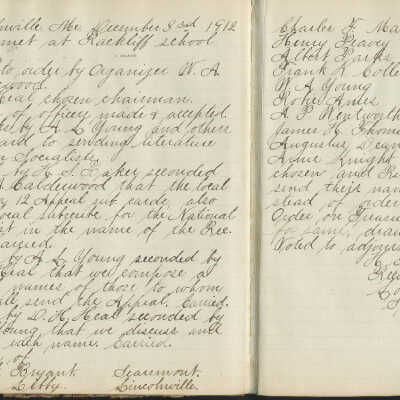 nville Me. December 3rd 1912
met at Rackliff school
to order by Organizer W. A
Heal chosen chairman.
of officers made & accepted
by A L Young and others
to sending literature
Socialists
by H. S. seconded
Calderwood that the local
12 Appeal sub cards, also
local subscribe for the National
in the name of the Rec.
Carried.
by A. L. Young seconded by
Heal that we compose a
names of those to whom
send the Appeal. Carried.
by D. H. Heal seconded by
Young that we discuss and
each name. Carried.
of
Bryant Searsmont.
Libby. Lincolnville.
Charles F. Ma
Henry Peavey
Albert Parks
Frank L Colle
W. A Young
A. P. Wentworth
James H. Thoma
Augustus Dean
Anne Knight
chosen and
send their nam
stead of order
Order on Treasu
for same, draw
Voted to adjourn